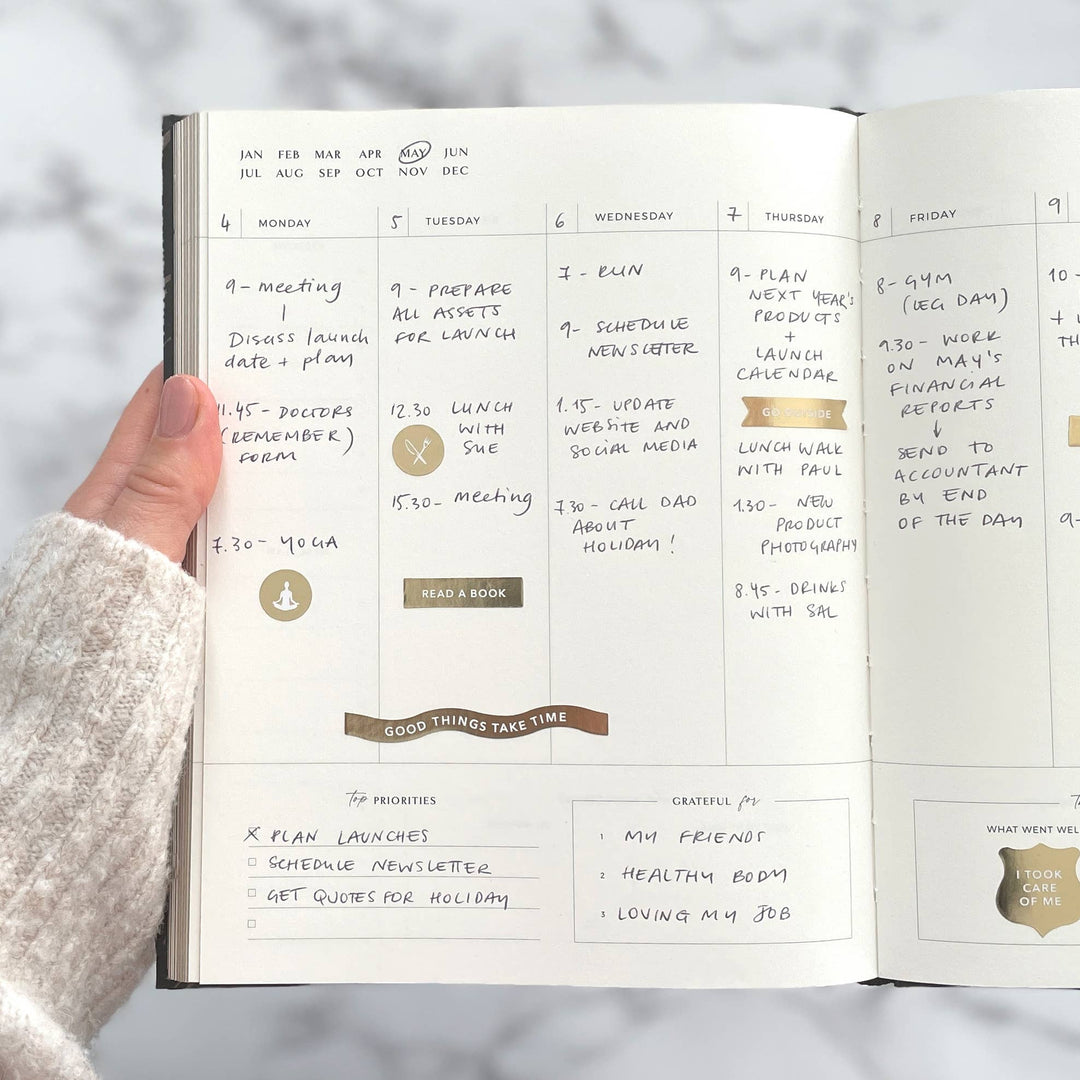 JAN FEB MAR APR MAY JUN
JUL AUG SEP OCT NOV DEC
4 MONDAY
9 - meeting
Discuss launch
date + plan
11.45 - DOCTORS
(REMEMBER)
FORM
7.30 - YOGA
5 TUESDAY
9 - PREPARE
ALL ASSETS
FOR LAUNCH
12.30 LUNCH
WITH
SUE
15.30 - meeting
READ A BOOK
GOOD THINGS TAKE TIME
6 WEDNESDAY
7 - RUN
9 - SCHEDULE
NEWSLETTER
1.15 - UPDATE
WEBSITE AND
SOCIAL MEDIA
7.30 - CALL DAD
ABOUT
HOLIDAY!
7 THURSDAY
9 - PLAN
NEXT YEAR'S
PRODUCTS
+
LAUNCH
CALENDAR
GO OUTSIDE
LUNCH WALK
WITH PAUL
1.30 - NEW
PRODUCT
PHOTOGRAPHY
8.45 - DRINKS
WITH SAL
8 FRIDAY
8 - GYM
(LEG DAY)
9.30 - WORK
ON MAY'S
FINANCIAL
REPORTS
↓
SEND TO
ACCOUNTANT
BY END
OF THE DAY
9
10 -
+
TH
9 -
Top PRIORITIES
X PLAN LAUNCHES
SCHEDULE NEWSLETTER
GET QUOTES FOR HOLIDAY
GRATEFUL for
1 MY FRIENDS
2 HEALTHY BODY
3 LOVING MY JOB
WHAT WENT WEL
I TOOK
CARE
OF ME